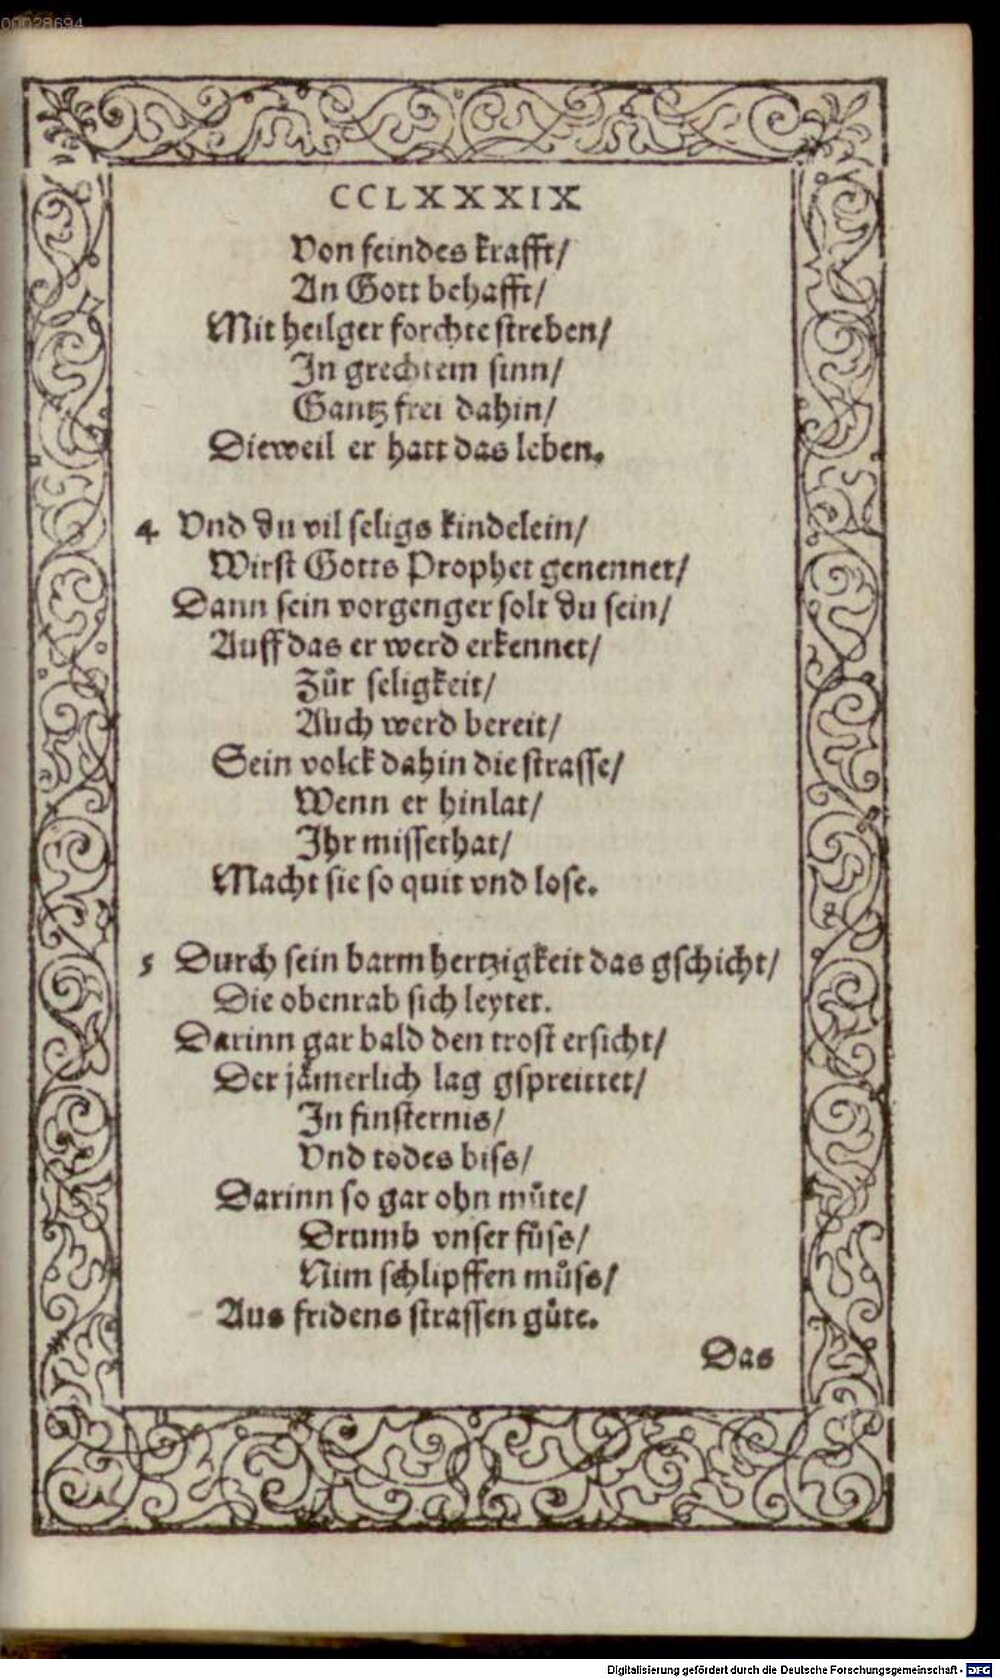 00028694
CCLXXXIX
Von feindes krafft/
An Gott behafft/
Mit heilger forchte streben/
In grechtem sinn/
Gantz frei dahin/
Dieweil er hatt das leben.
4 Vnd du vil seligs kindelein/
Wirst Gotts Prophet genennet/
Dann sein vorgenger solt du sein/
Auff das er werd erkennet/
Zůr seligkeit/
Auch werd bereit/
Sein volck dahin die strasse/
Wenn er hinlat/
Ihr missethat/
Macht sie so quit vnd lose.
5 Durch sein barmhertzigkeit das gschicht/
Die obenrab sich leytet.
Darinn gar bald den trost ersicht/
Der jämerlich lag gspreittet/
In finsternis/
Vnd todes biss/
Darinn so gar ohn můte/
Drumb vnser fůss/
Nim schlipffen můss/
Aus fridens strassen gůte.
Das
Digitalisierung gefördert durch die Deutsche Forschungsgemeinschaft - DFG